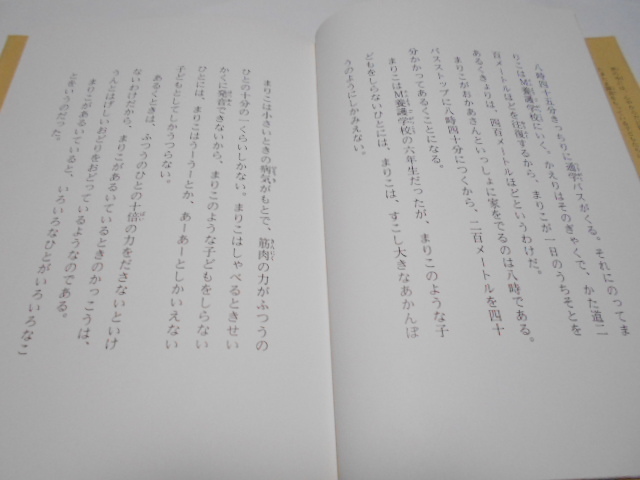 八時四十五分きっちりに通学バスがくる。それにのってま
りこはM養護学校にいく。かえりはそのぎゃくで、かた道二
百メートルほどを往復するから、まりこが一日のうちそとを
あるくきょりは、四百メートルほどというわけだ。
まりこがおかあさんといっしょに家をでるのは八時である。
バスストップに八時四十分につくから、二百メートルを四十
分かかってあるくことになる。
まりこはM養護学校の六年生だったが、まりこのような子
どもをしらないひとには、まりこは、すこし大きなあかんぼ
うのようにしかみえない。
まりこは小さいときの病気がもとで、筋肉の力がふつうの
ひとの十分の一くらいしかない。まりこはしゃべるときせい
かくに発音できないから、まりこのような子どもをしらない
ひとには、まりこはうーうーとか、あーあーとしかいえない
子どもとしてしかうつらない。
あるくときは、ふつうのひとの十倍の力をださないといけ
ないわけだから、まりこがあるいているときのかっこうは、
うんとはげしいおどりをおどっているようなのである。
まりこがあるいていると、いろいろなひとがいろいろなこ
とをいうのだった。